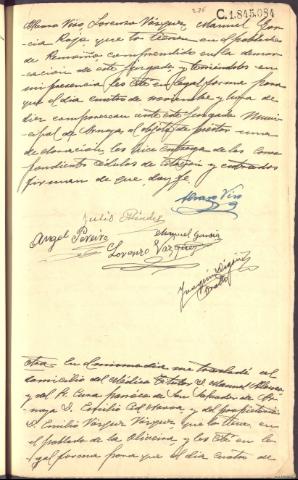 276 C.1.845.084
Alfonso Viso Lorenzo Vázquez, Manuel Gar-
cia Rojo que lo tienen en el poblado
de comprendido en la demar-
cación de este juzgado y teniéndolos en
mi presencia les cité en legal forme para
que el día cuatro de noviembre y hora de
diez comparezcan ante este Juzgado Muni-
cipal de al objeto de prestar una
declaración, les hice entrega de las corres-
pondientes cédulas de citación y enterados
firman de que doy fe
Alfonso Viso
Julio Méndez
Angel Pereiro Manuel Garcia
Lorenzo Vazquez
Joaquin
Otra. En el mismo dia me trasladé al
domicilio del D. Manuel
y del R. Cura párroco de San Salvador de
D. Emilio y del propietario
D. Emilio Vázquez Vázquez que lo tienen en
el poblado de la Oliveira, y les cité en le-
gal forma para que el día cuatro de